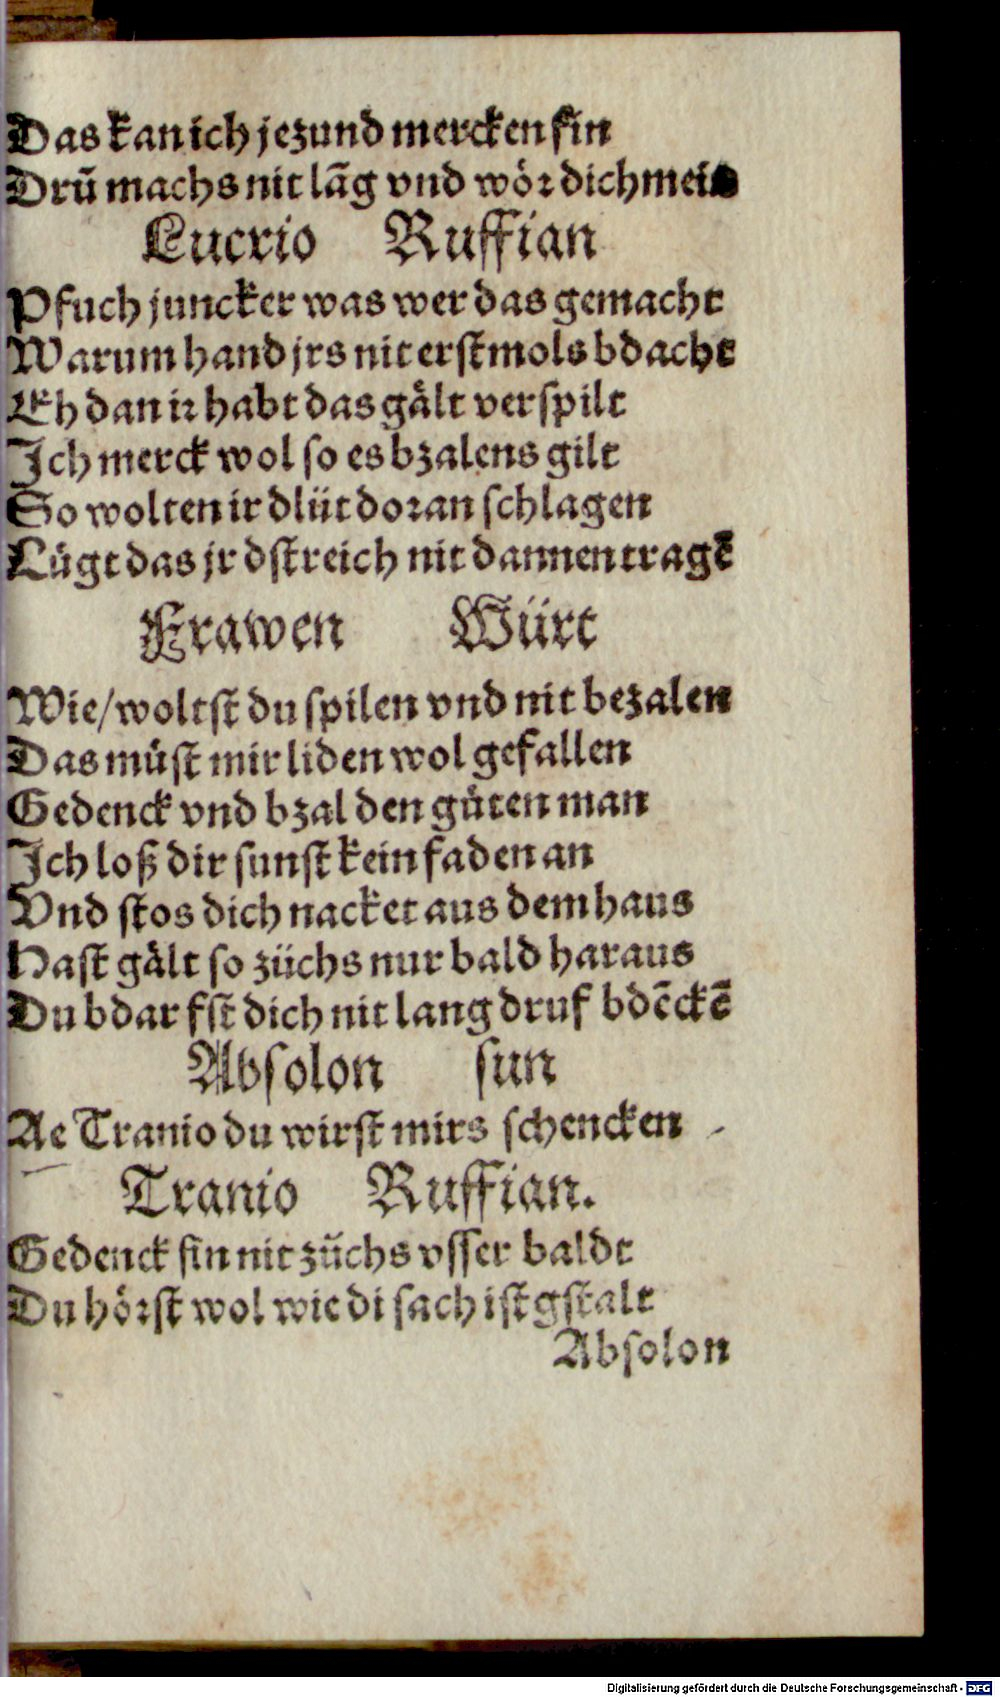 Das kan ich jezund mercken fin
Drū machs nit lāg vnd wör dich mein
Lucrio Ruffian
Pfuch juncker was wer das gemacht
Warum hand jrs nit erstmols bdacht
Eh dan ir habt das gält verspilt
Ich merck wol so es bzalens gilt
So wolten ir dlüt doran schlagen
Lůgt das jr dstreich nit dannen tragē
Frawen Würt
Wie/ woltst du spilen vnd nit bezalen
Das můst mir liden wol gefallen
Gedenck vnd bzal den gůten man
Ich loß dir sunst kein faden an
Vnd stos dich nacket aus dem haus
Hast gält so züchs nur bald haraus
Du bdarfst dich nit lang druf bdēckē
Absolon sun
Ae Tranio du wirst mirs schencken
Tranio Ruffian.
Gedenck sin nit züchs vsser baldt
Du hörst wol wie di sach ist gstalt
Absolon
Digitalisierung gefördert durch die Deutsche Forschungsgemeinschaft - DFG